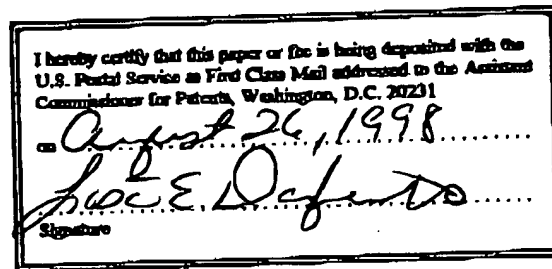 I hereby certify that this paper or fee is being deposited with the
U.S. Postal Service as First Class Mail addressed to the Assistant
Commissioner for Patents, Washington, D.C. 20231
on August 26, 1998
E.
Signature